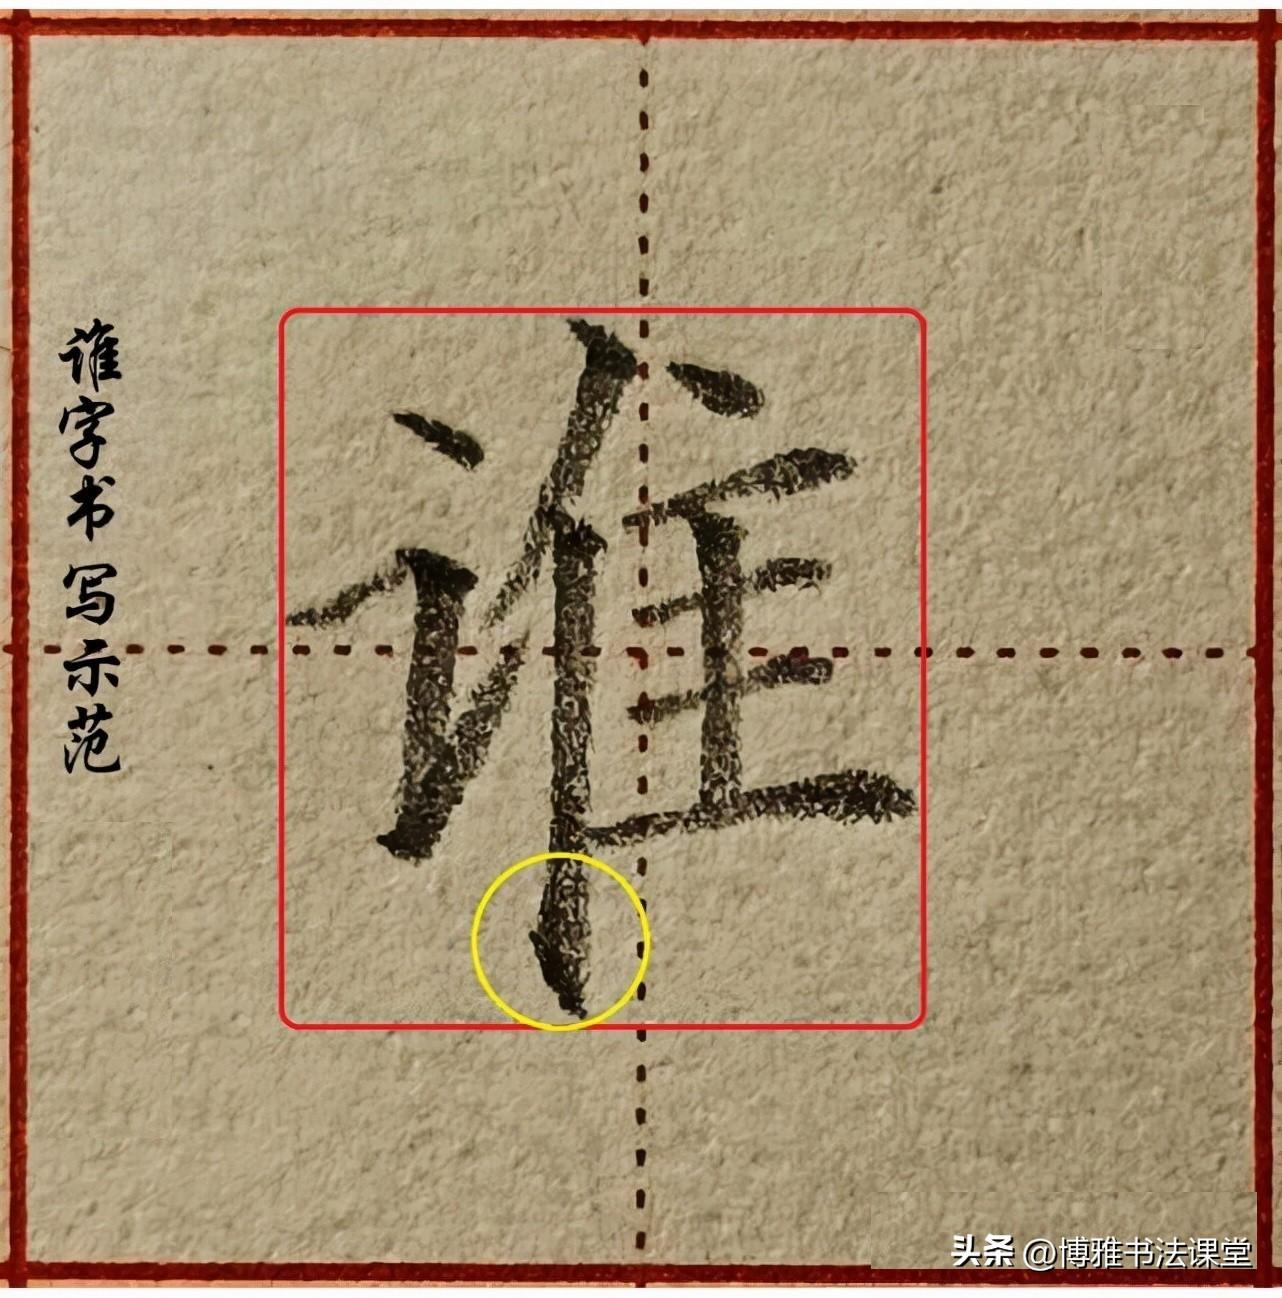 谁字书写示范
谁
头条 @博雅书法课堂